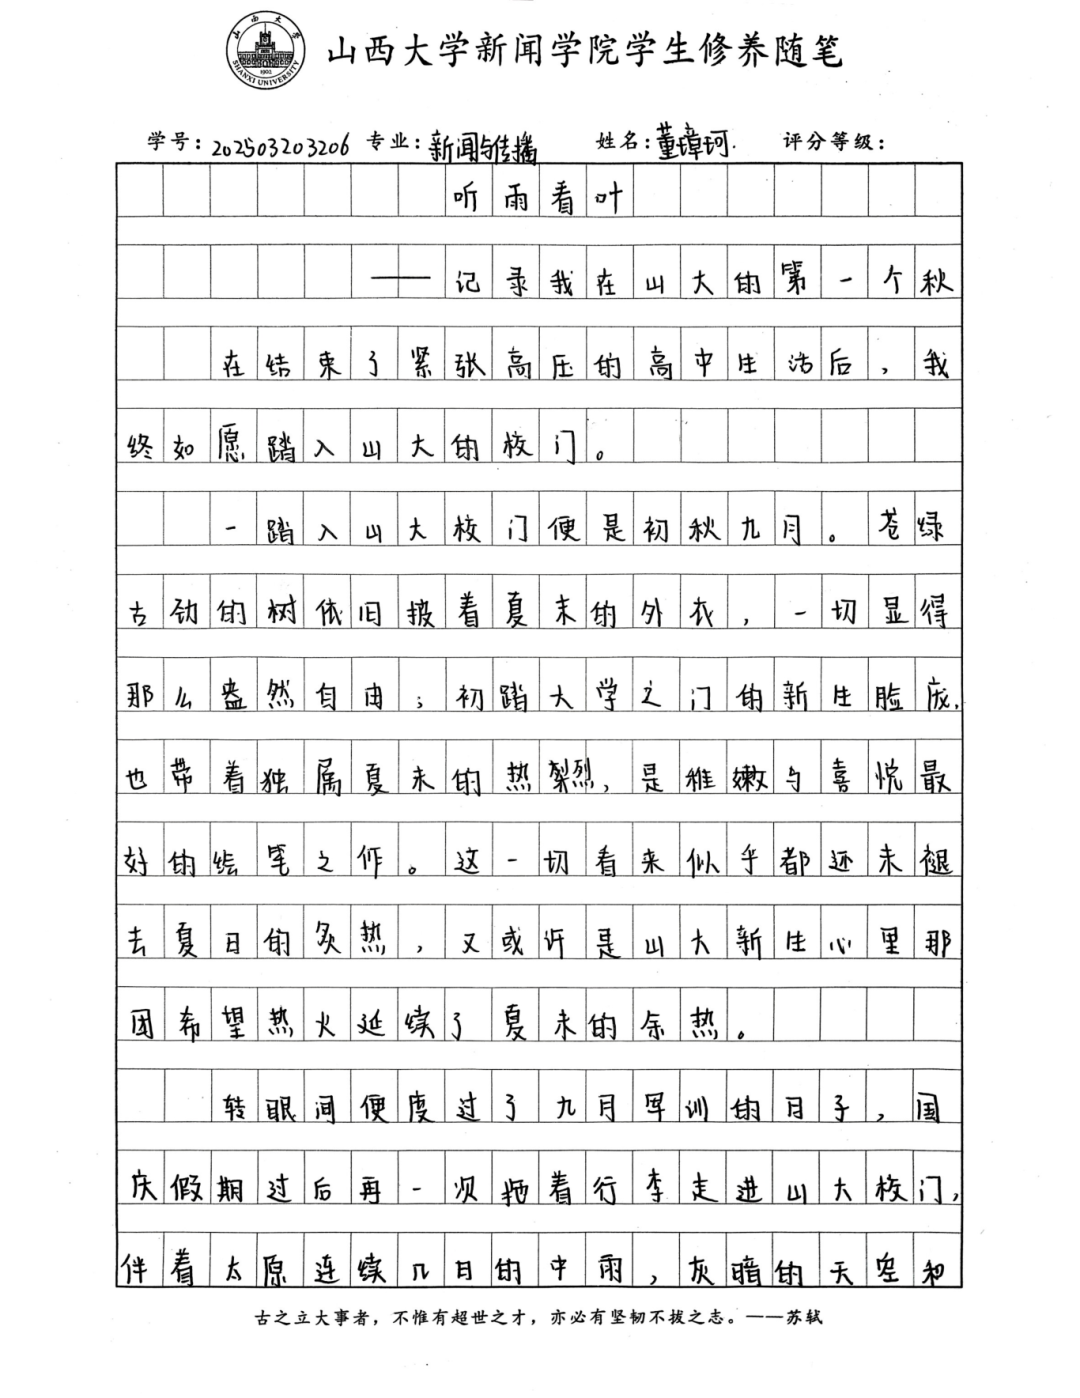 山西大学
SHANXI UNIVERSITY
1902
山西大学新闻学院学生修养随笔
学号：202503203206 专业：新闻与传播 姓名：董璋珂. 评分等级：
听雨看叶
——记录我在山大的第一个秋
在结束了紧张高压的高中生活后，我
终如愿踏入山大的校门。
一踏入山大校门便是初秋九月。苍绿
古劲的树依旧披着夏末的外衣，一切显得
那么盎然自由；初踏大学之门的新生脸庞，
也带着独属夏末的热烈，是稚嫩与喜悦最
好的绘笔之作。这一切看来似乎都还未褪
去夏日的炙热，又或许是山大新生心里那
团希望热火延续了夏末的余热。
转眼间便度过了九月军训的日子，国
庆假期过后再一次拖着行李走进山大校门，
伴着太原连续几日的中雨，灰暗的天空和
古之立大事者，不惟有超世之才，亦必有坚韧不拔之志。——苏轼